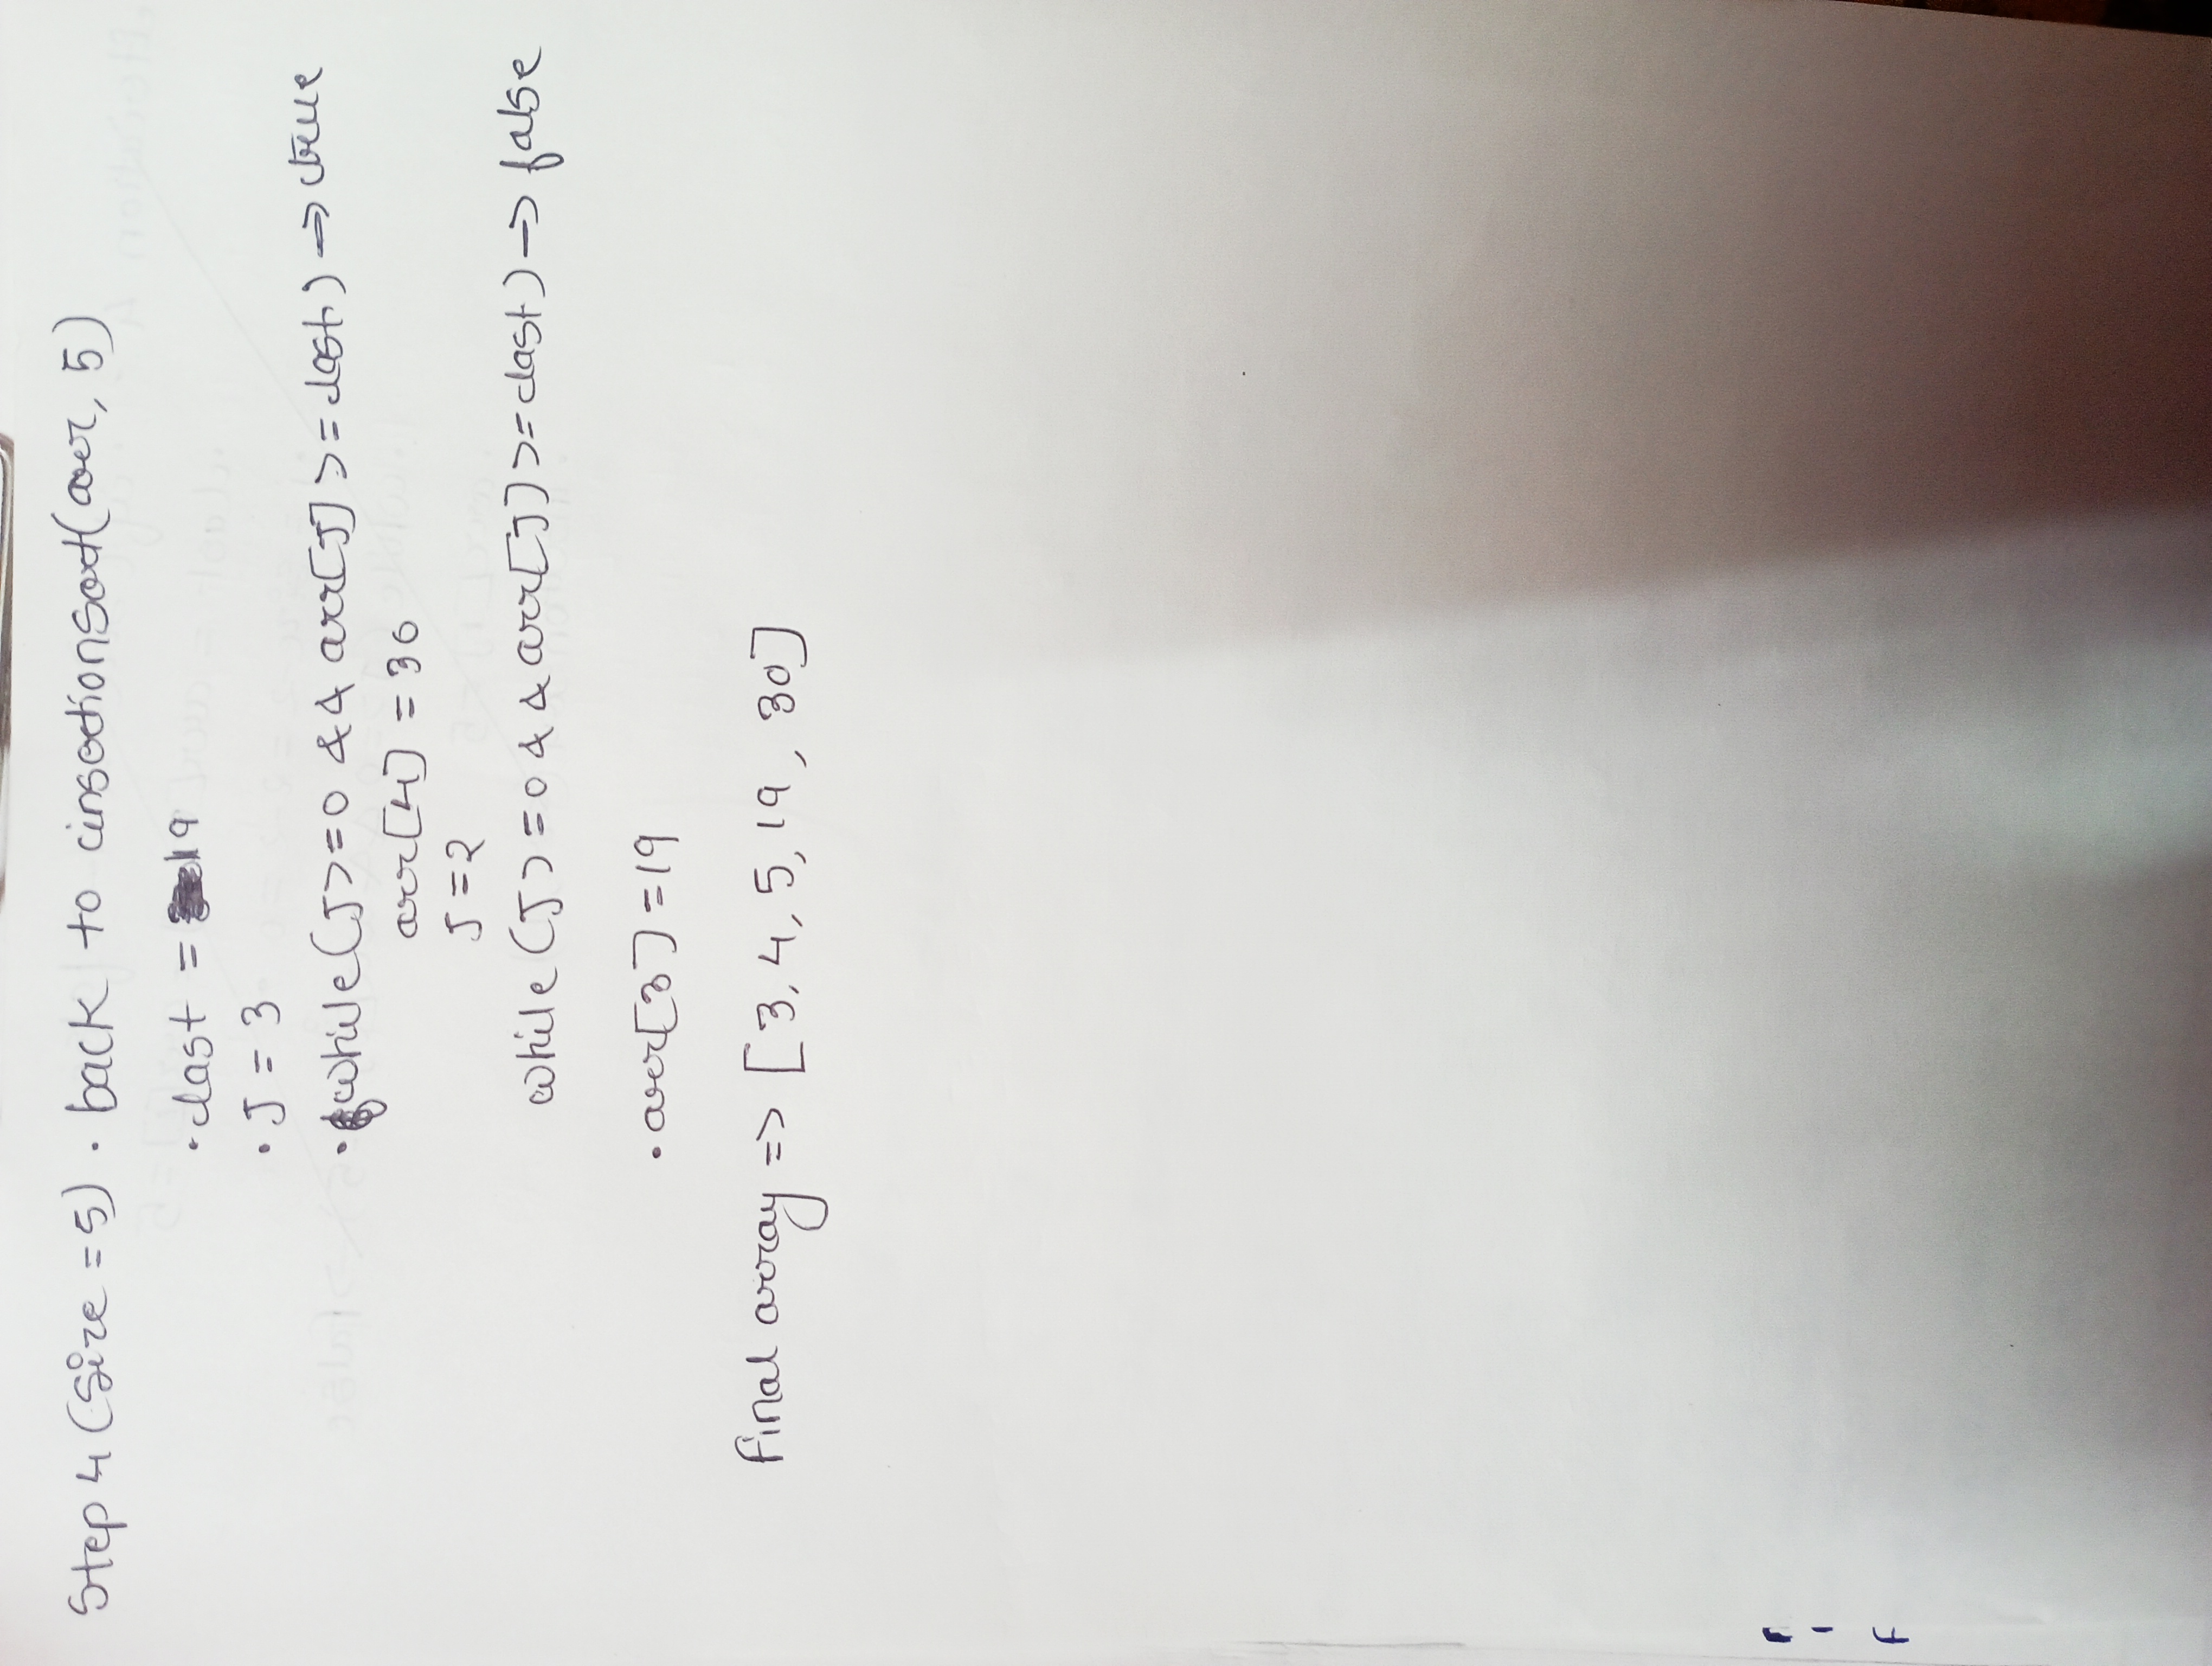 Step 4 (Size = 5) . back to insertionSort(arr, 5)
. last = 19
. J = 3
. while (J >= 0 && arr[J] >= last) → true
arr[4] = 30
J = 2
while (J >= 0 && arr[J] >= last) → false
. arr[3] = 19
Final array => [3, 4, 5, 19, 30]